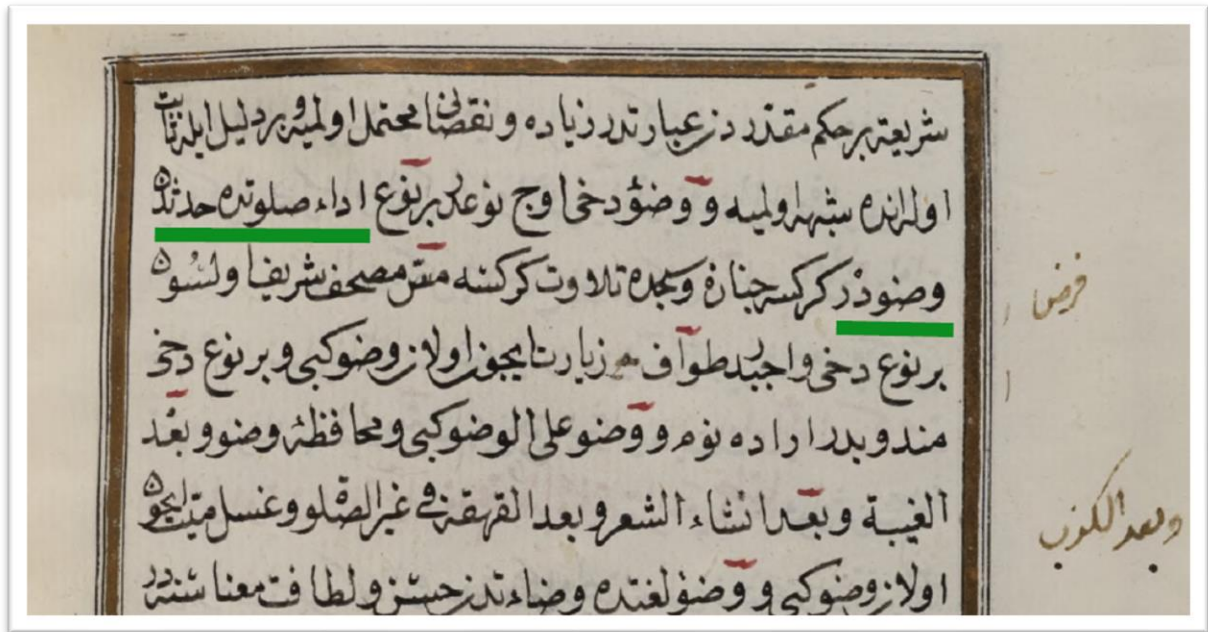 شريعة بر حكم مقدردن عبارتدر زياده و نقصانى محتمل اولميه بر دليل ايله ثابت
اولاند‌ه شبهه اولميه و وضؤ دخى اوج نوعدر بر نوع اداء صلوتده حدثدن
وضودر كركسه جنازه و سجده تلاوت كركسه مس مصحف شريف اولسون
بر نوع دخى واجبدر طواف زيارت ايچون اولان وضو كبى و بر نوع دخى
مندوبدر اراده نوم و وضو على الوضو كبى و محافظة وضو و بعد
الغيبة و بعد انشاء الشعر و بعد القهقهة فى غير الصلو و غسل ميت ايچون
اولان وضو كبى و وضو لغتده وضاءتدن حسن و لطافت معناسنه در
فرض
وبعد الكذب